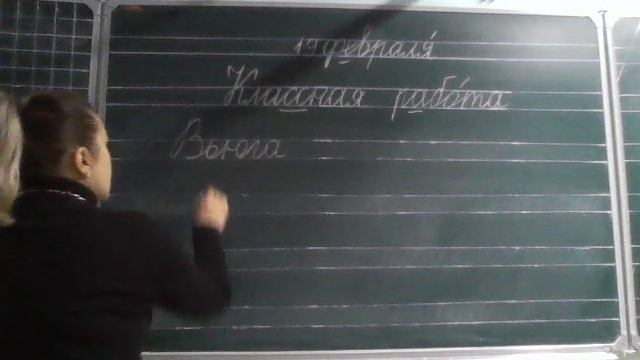 19 февраля́
Классная рабо́та
Вьюга